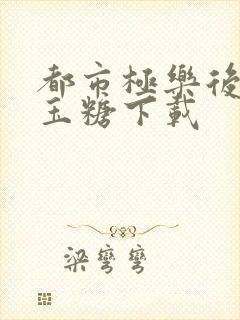 都市極樂後
玉糖下載
梁彎彎